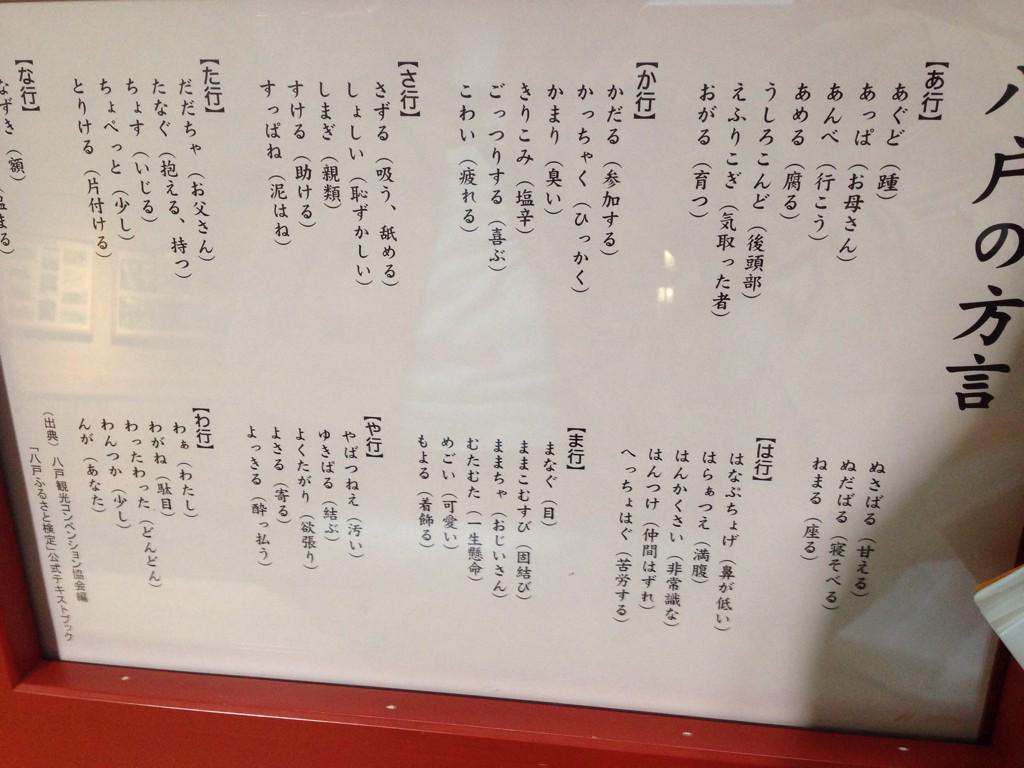 八戸の方言
【あ行】
あぐど（踵）
あっぱ（お母さん）
あんべ（行こう）
あめる（腐る）
うしろこんど（後頭部）
えふりこぎ（気取った者）
おがる（育つ）
【か行】
かだる（参加する）
かっちゃく（ひっかく）
かまり（臭い）
きりこみ（塩辛）
ごっつりする（喜ぶ）
こわい（疲れる）
【さ行】
さずる（吸う、舐める）
しょしい（恥ずかしい）
しまぎ（親類）
すける（助ける）
すっぱね（泥はね）
【た行】
だだちゃ（お父さん）
たなぐ（抱える、持つ）
ちょす（いじる）
ちょぺっと（少し）
とりける（片付ける）
【な行】
なずき（額）
ぬさばる（甘える）
ぬだばる（寝そべる）
ねまる（座る）
【は行】
はなぶちょげ（鼻が低い）
はらぁつえ（満腹）
はんかくさい（非常識な）
はんつけ（仲間はずれ）
へっちょはぐ（苦労する）
【ま行】
まなぐ（目）
ままこむすび（固結び）
ままちゃ（おじいさん）
むたむた（一生懸命）
めごい（可愛い）
もよる（着飾る）
【や行】
やばつねえ（汚い）
ゆきばる（結ぶ）
よくたがり（欲張り）
よさる（寄る）
よっきる（酔っ払う）
【わ行】
わぁ（わたし）
わがね（駄目）
わったわった（どんどん）
わんつか（少し）
んが（あなた）
（出典）八戸観光コンベンション協会編
「八戸ふるさと検定」公式テキストブック